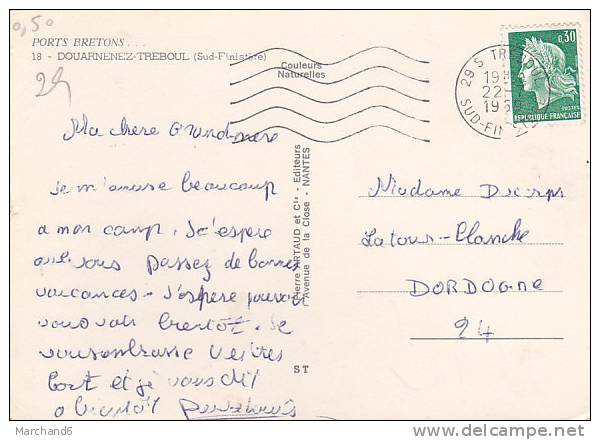 0,50
PORTS BRETONS...
18 - DOUARNENEZ-TREBOUL (Sud-Finistère)
29
Couleurs
Naturelles
29 S TREBOUL
22
SUD-FIN
0,30
POSTES
REPUBLIQUE FRANÇAISE
Ma chere Grand-mere
Je m'amuse beaucoup
a mon camp. J'espere
que vous passez de bonnes
vacances. J'espere pouvoir
vous voir bientôt. Je
vous embrasse
fort et je vous dit
a bientôt
Pierre ARTAUD et Cie - Editeurs
Avenue de la Close - NANTES
ST
Madame
Latour-Blanche
DORDOGNE
24
Marchand6
www.delcampe.net